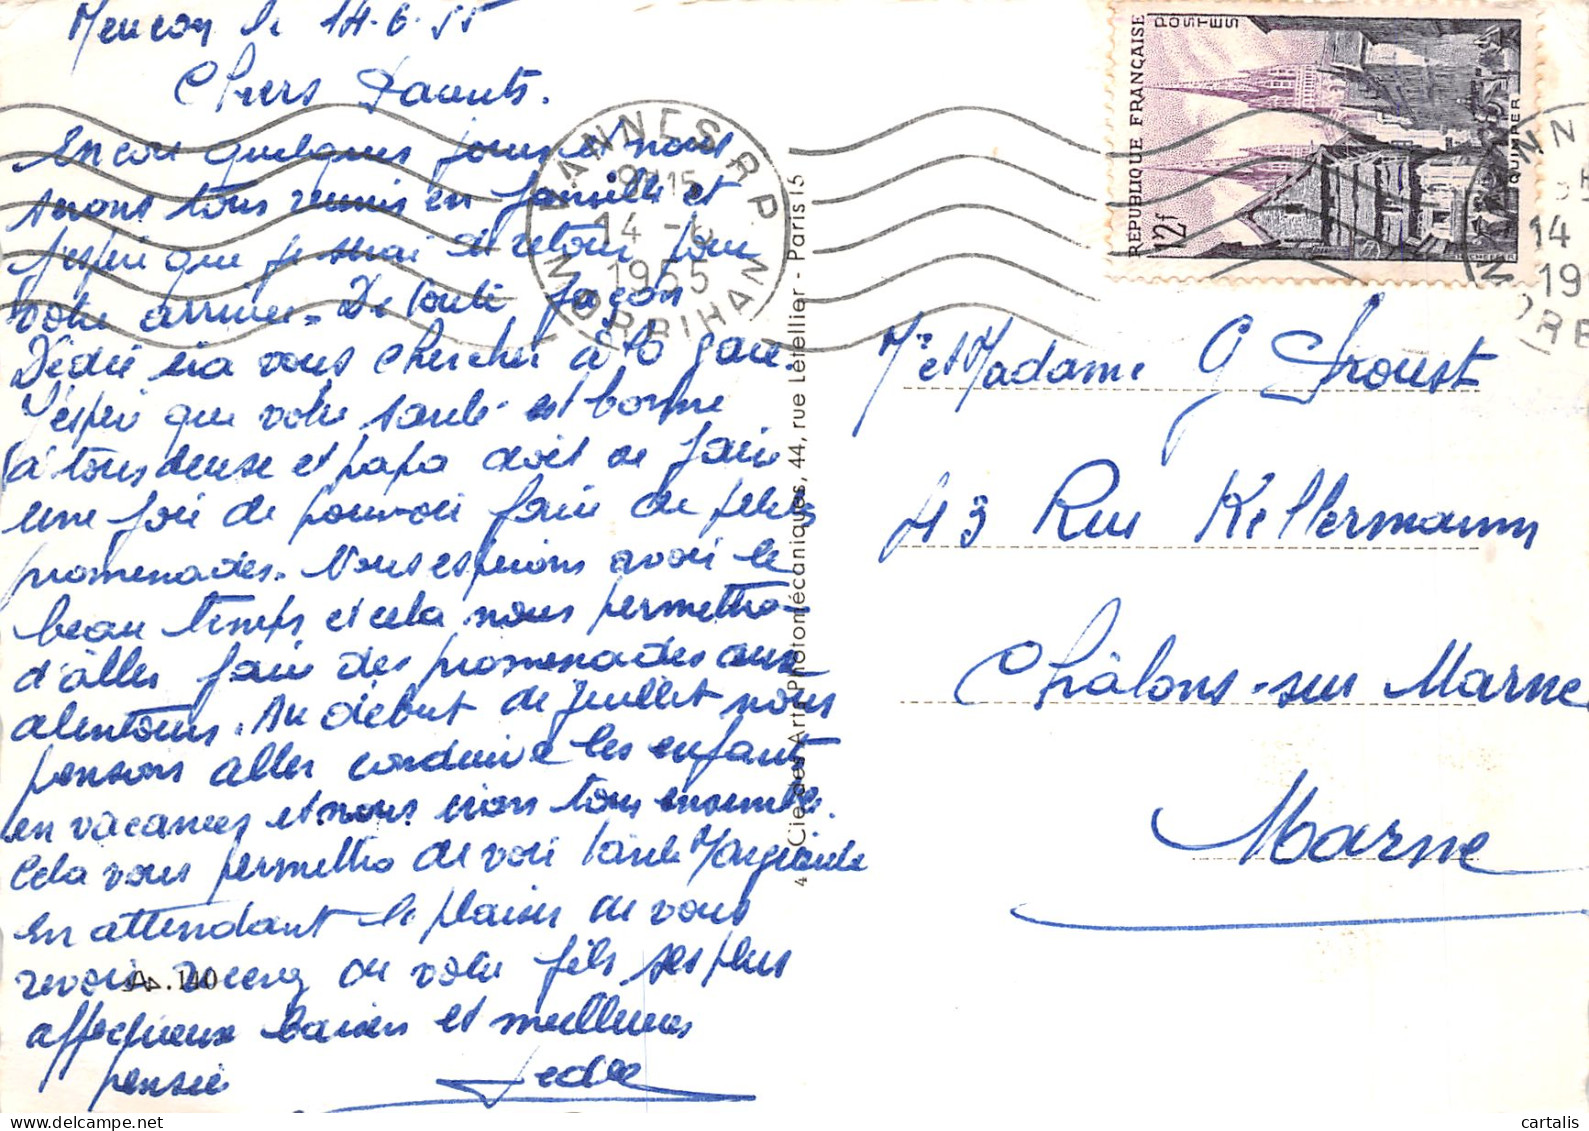 le 14-6-55
Chers Parents.
Encore quelques jours et nous
serons tous réunis en famille et
j'espère que je serai de retour pour
votre arrivée. De toute façon
Dédée ira vous chercher à la gare.
J'espère que votre santé est bonne
à tous deux et papa doit se faire
une joie de pouvoir faire de petites
promenades. Nous espérons avoir le
beau temps et cela nous permettra
d'aller faire des promenades aux
alentours. Au début de Juillet nous
pensons aller conduire les enfants
en vacances et nous irons tous ensemble.
Cela vous permettra de voir tante Marguerite
En attendant le plaisir de vous
revoir recevez de votre fils ses plus
affectueux baisers et meilleures
pensée
A. 140
VANNES R.P.
MORBIHAN
14 -6
1955
4 Cie des Arts Photomécaniques, 44, rue Letellier - Paris 15
RÉPUBLIQUE FRANÇAISE
POSTES
12f
QUIMPER
Mr et Madame G
43 Rue Kellermann
Châlons-sur Marne
Marne
cartalis